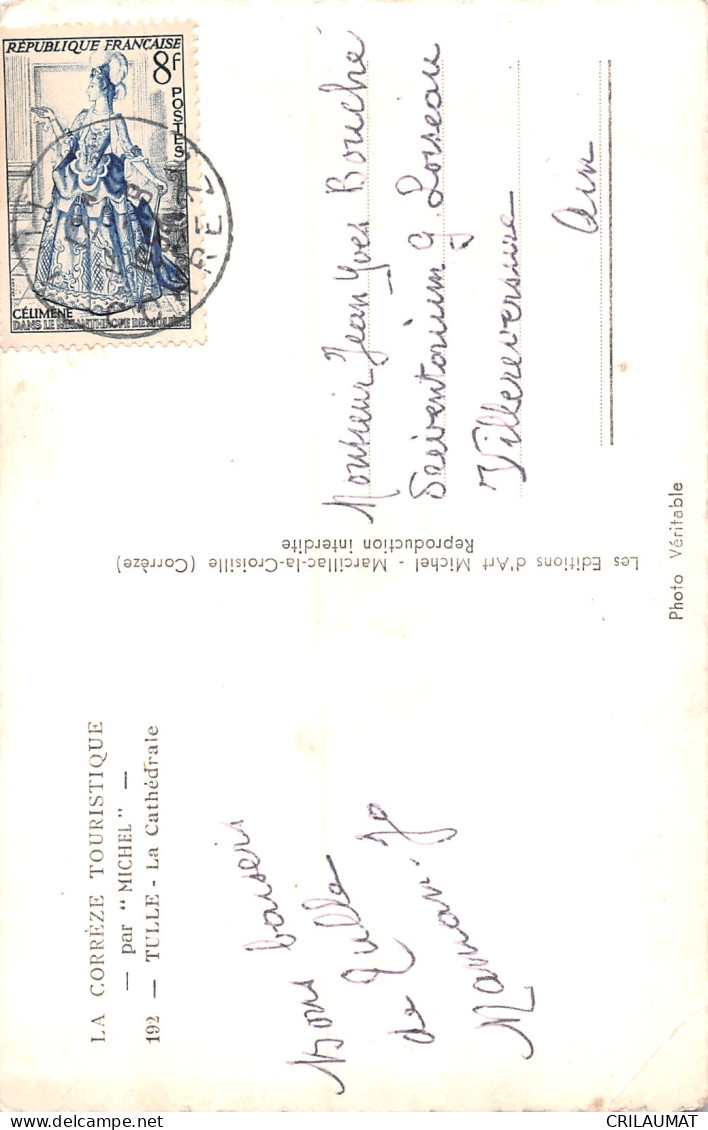 LA CORRÈZE TOURISTIQUE
— par "MICHEL" —
192 — TULLE - La Cathédrale
Bons baisers
de Tulle
Maman. Jo
Les Editions d'Art Michel - Marcillac-la-Croisille (Corrèze)
Reproduction interdite
RÉPUBLIQUE FRANÇAISE
8F
POSTES
CÉLIMÈNE
DANS LE MISANTHROPE DE MOLIÈRE
CORREZE
Monsieur Jean Yves Bouché
G. Loiseau
Villereversure
Ain
Photo Véritable
CRILAUMAT